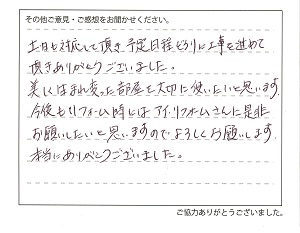 その他ご意見・ご感想をお聞かせください。
土日も対応して頂き予定日程どうりに工事を進めて
頂きありがとうございました。
美しく生まれ変った部屋を大切に使いたいと思います。
今後もリフォーム時にはアイリフォームさんに是非
お願いしたいと思いますのでよろしくお願いします。
本当にありがとうございました。
ご協力ありがとうございました。